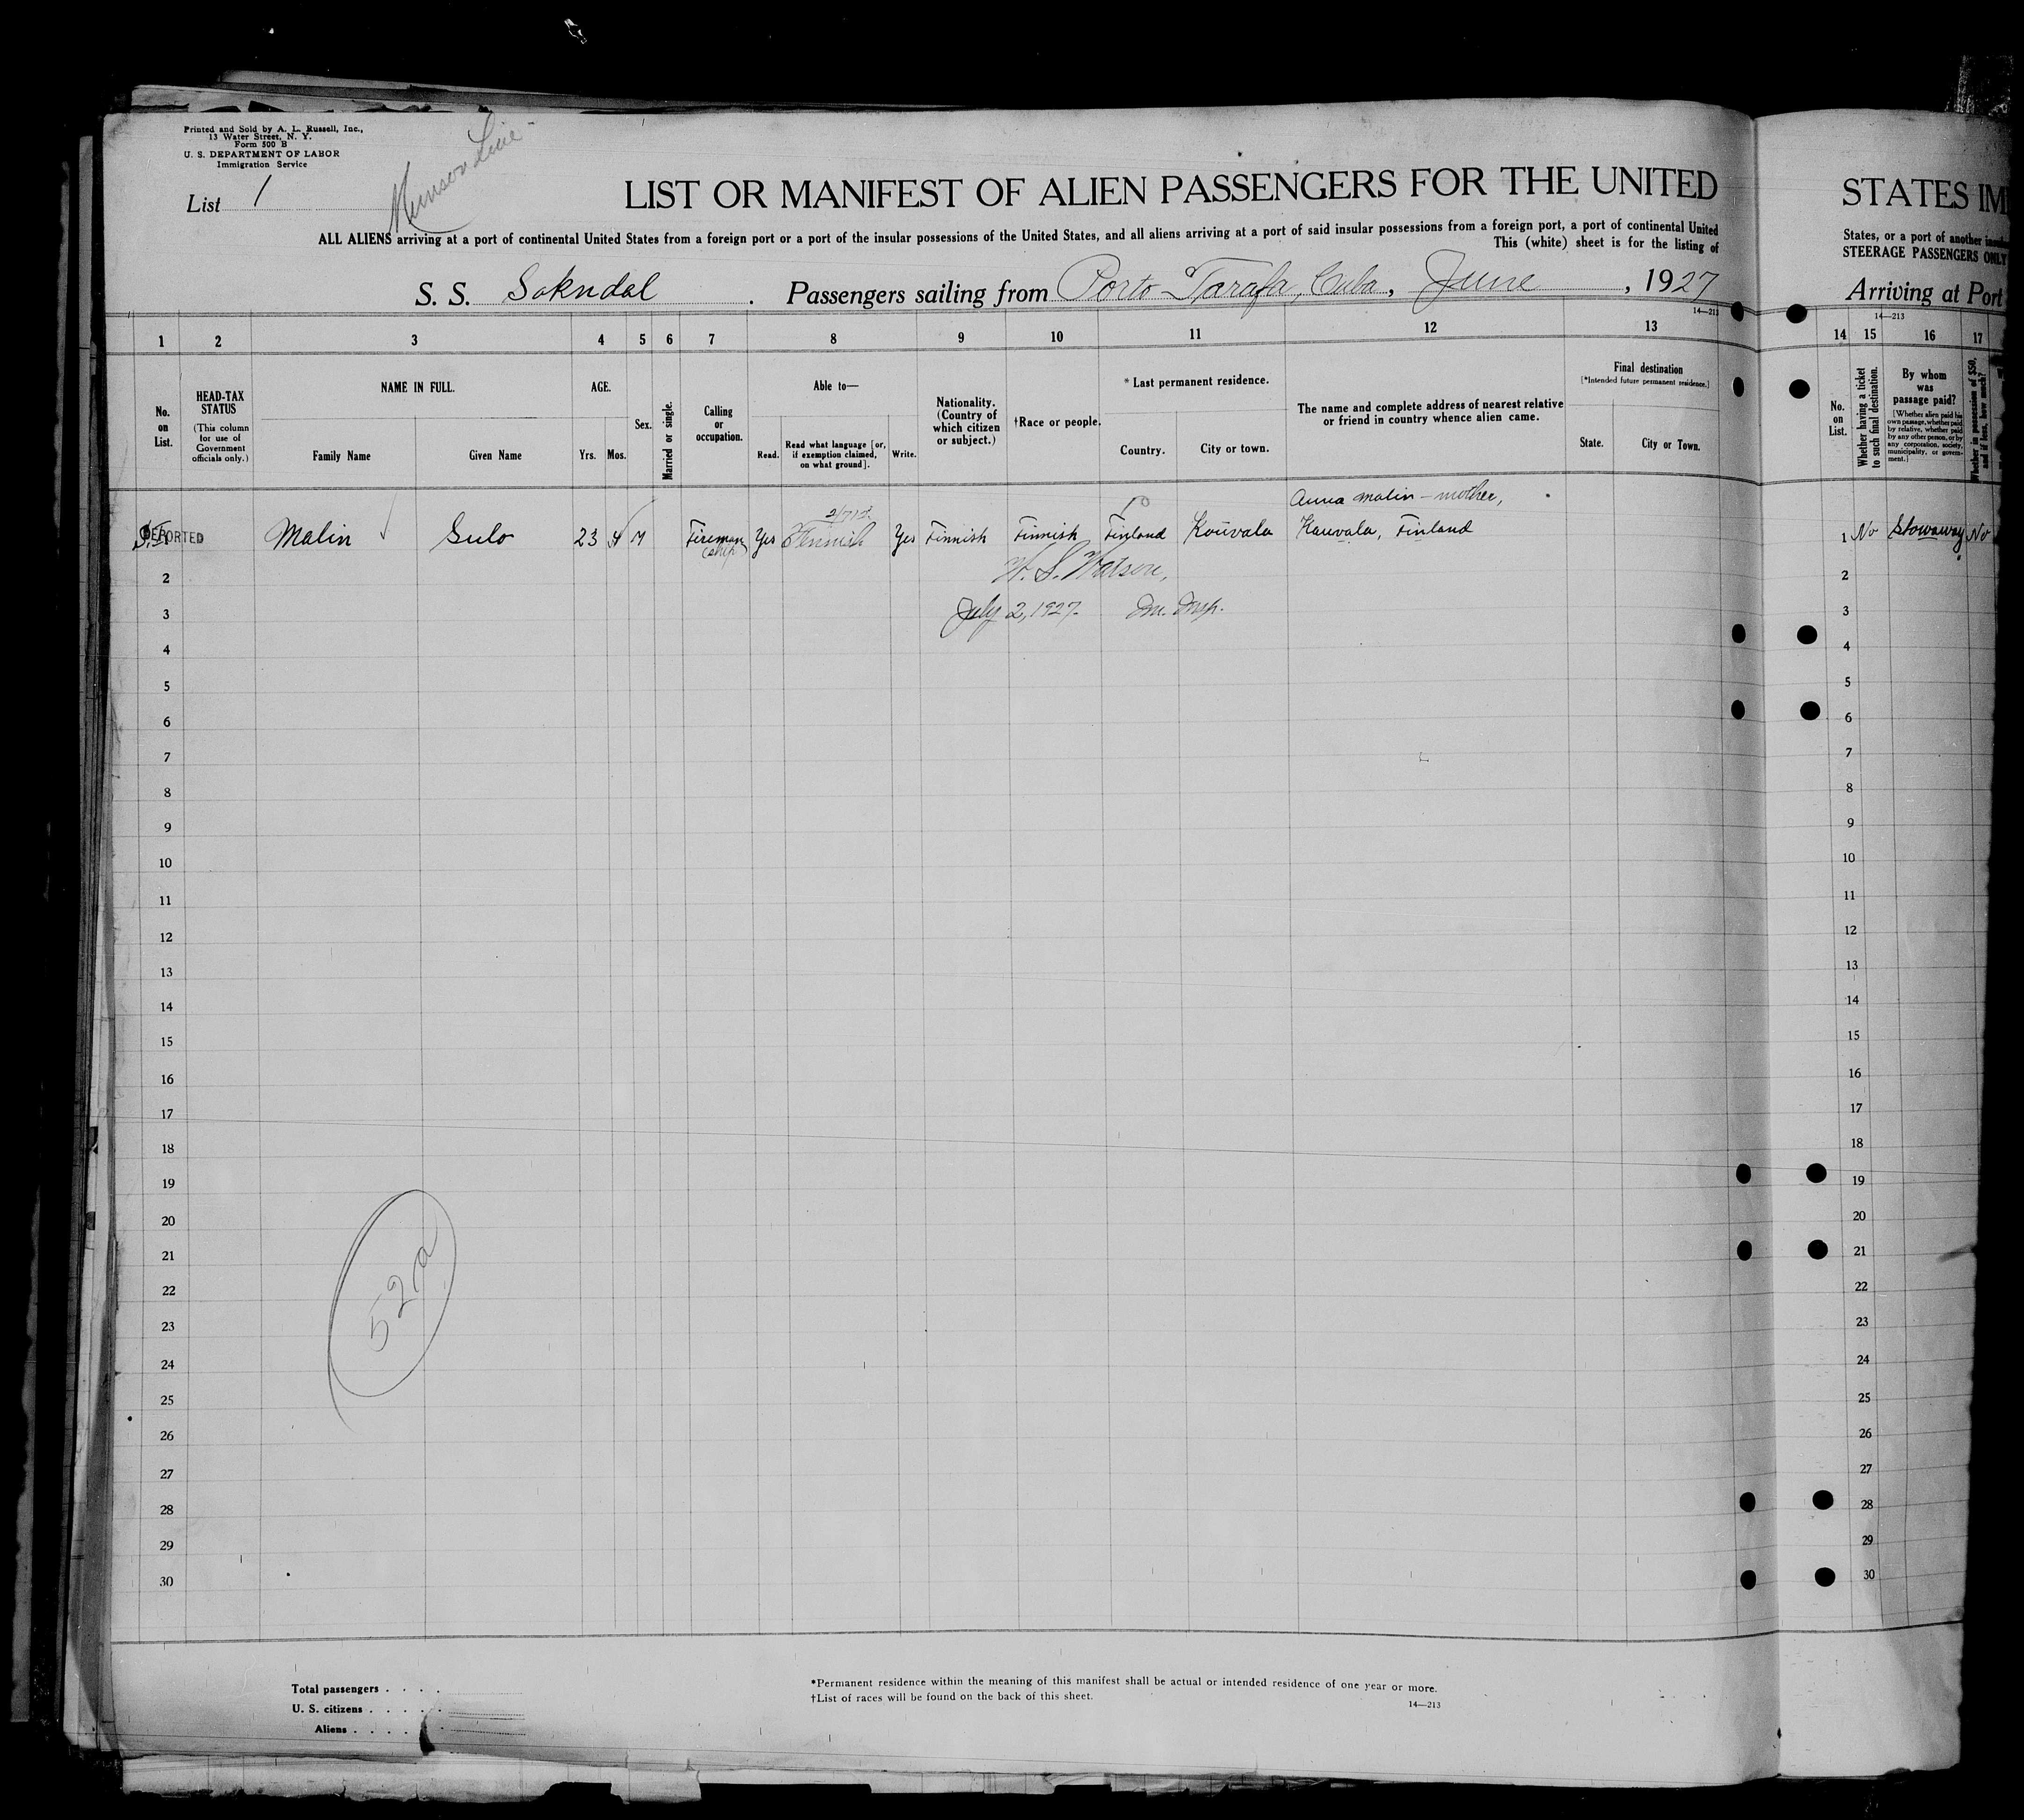 Printed and Sold by A. L. Russell, Inc.,
13 Water Street, N. Y.
Form 500 B
U. S. DEPARTMENT OF LABOR
Immigration Service
Munson Line
List 1
LIST OR MANIFEST OF ALIEN PASSENGERS FOR THE UNITED
ALL ALIENS arriving at a port of continental United States from a foreign port or a port of the insular possessions of the United States, and all aliens arriving at a port of said insular possessions from a foreign port, a port of continental United
This (white) sheet is for the listing of
S. S. Sokndal . Passengers sailing from Porto Tarafa, Cuba, June , 1927
14—213
1 2 3 4 5 6 7 8 9 10 11 12 13
No. on List.
HEAD-TAX STATUS
(This column for use of Government officials only.)
NAME IN FULL.
Family Name Given Name
AGE.
Yrs. Mos.
Sex.
Married or single.
Calling or occupation.
Able to—
Read. Read what language [or, if exemption claimed, on what ground]. Write.
Nationality. (Country of which citizen or subject.)
†Race or people.
*Last permanent residence.
Country. City or town.
The name and complete address of nearest relative or friend in country whence alien came.
Final destination
[*Intended future permanent residence.]
State. City or Town.
Anna Malin - mother,
DEPORTED Malin Sulo 23 M Fireman Yes Finnish Yes Finnish Finnish Finland Kouvala Kauvala, Finland
(ship)
W. S. Watson,
July 2, 1927. Im. Insp.
2
3
4
5
6
7
8
9
10
11
12
13
14
15
16
17
18
19
20
21
22
23
24
25
26
27
28
29
30
52a
Total passengers . . . .
U. S. citizens . . . . .
Aliens . . . . .
*Permanent residence within the meaning of this manifest shall be actual or intended residence of one year or more.
†List of races will be found on the back of this sheet.
14—213
STATES IM
States, or a port of another
STEERAGE PASSENGERS ONLY
Arriving at Port
14—213
14 15 16 17
No. on List.
Whether having a ticket to such final destination.
By whom was passage paid?
[Whether alien paid his own passage, whether paid by relative, whether paid by any other person, or by any corporation, society, municipality, or government.]
Whether in possession of $50, and if less, how much?
1 No Stowaway No
2
3
4
5
6
7
8
9
10
11
12
13
14
15
16
17
18
19
20
21
22
23
24
25
26
27
28
29
30